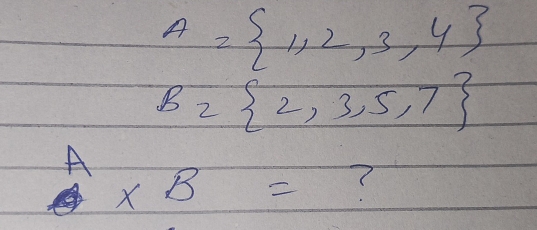 A = {1, 2, 3, 4}
B = {2, 3, 5, 7}
A × B = ?